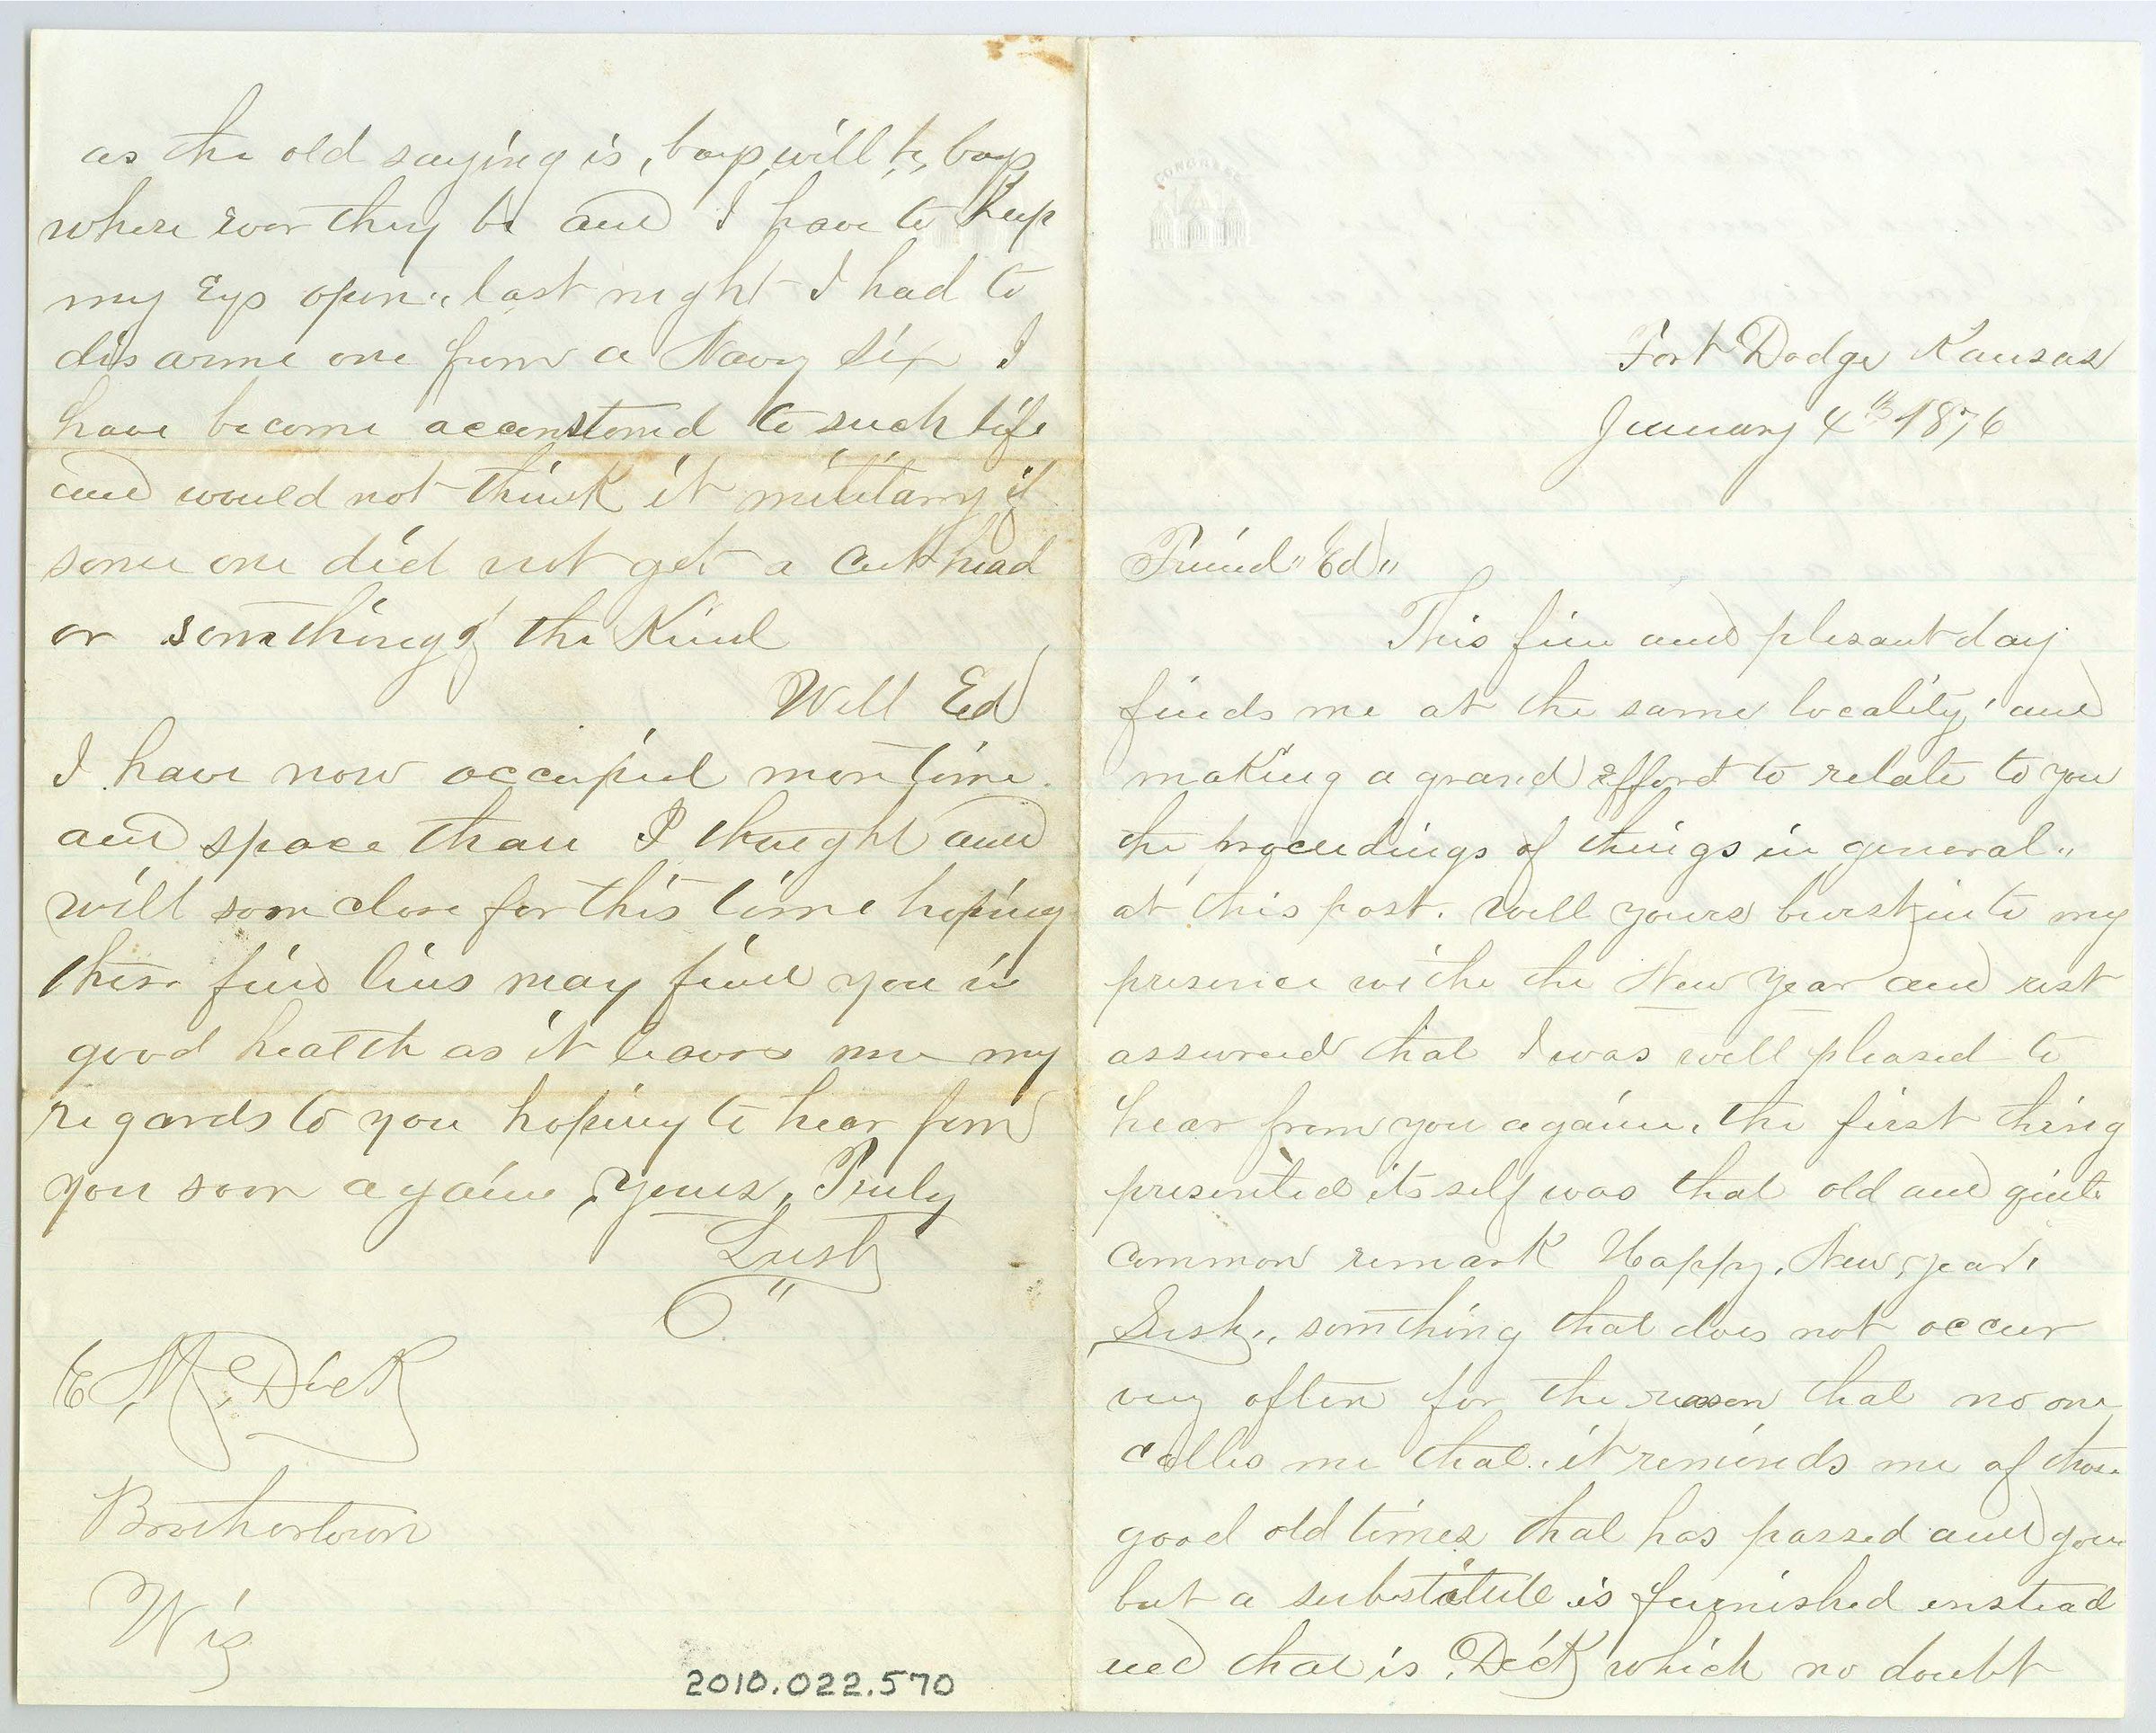 CONGRESS
Fort Dodge Kansas
January 4th 1876
Friend "Ed"
This fine and plesant day
finds me at the same locality and
making a grand effort to relate to you
the procudings of things in general"
at this post. Well yours burst into my
presence withe the New Year and rest
assured that I was well pleased to
hear from you againe. the first thing
presented its self was that old and quite
common remark Happy, New, year,
Lusty,, somthing that does not occur
very often for the reason that no one
calles me that. it reminds me of those
good old times that has passed and gone
but a substitute is furnished instead
and that is Dick which no doubt
as the old saying is, boys will be, boys
where ever they be and I have to keep
my Eys open,, last night I had to
disarme one from a Navy six I
have become accustomed to such life
and would not think it military if
some one did not get a cut head
or something of the Kind
Well Ed
I have now occupied more time
and space than I thought and
will soon close for this time hoping
these few lins may find you in
good health as it leaves me my
regards to you hoping to hear from
you soon againe, Yours, Truly
Lusty
E. M. Dick
Brothertown
Wis
2010.022.570